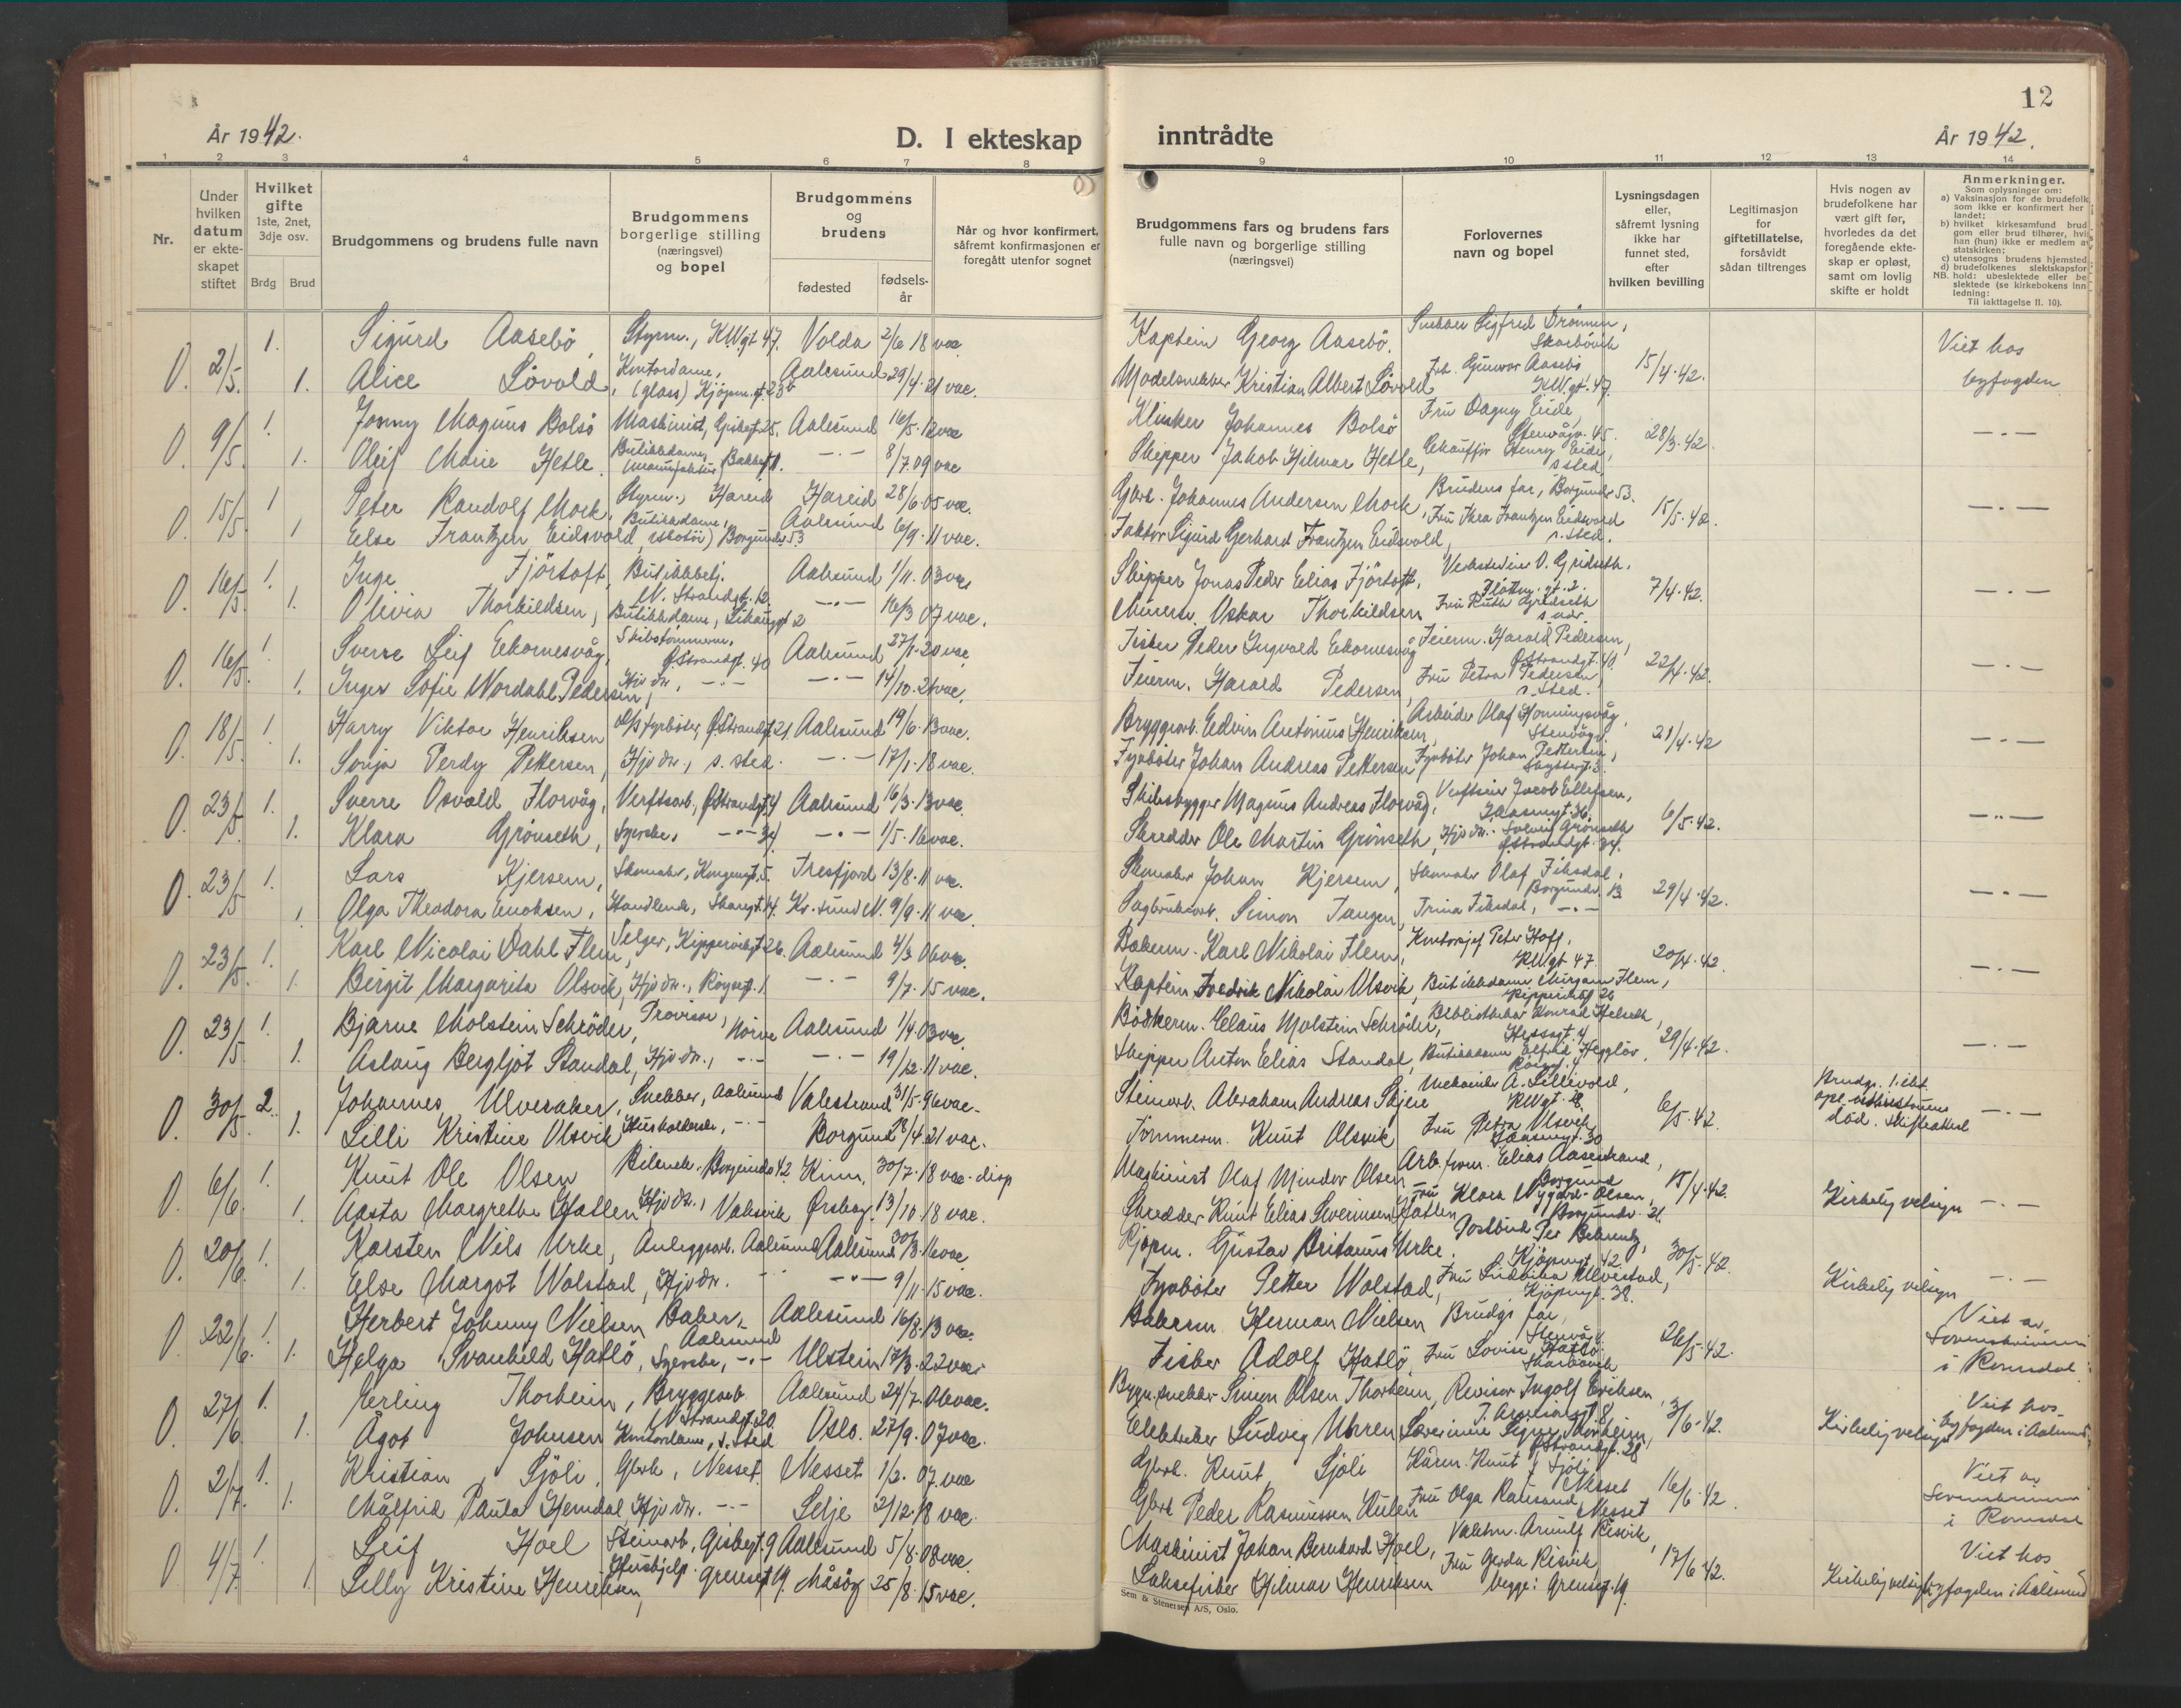 År 1942.
D. I ekteskap
1 2 3 4 5 6 7 8
Nr.
Under hvilken datum er ekteskapet stiftet
Hvilket gifte 1ste, 2net, 3dje osv.
Brdg Brud
Brudgommens og brudens fulle navn
Brudgommens borgerlige stilling (næringsvei) og bopel
Brudgommens og brudens
fødested
fødsels-år
Når og hvor konfirmert, såfremt konfirmasjonen er foregått utenfor sognet
O. 2/5. 1. Sigurd Aasebö, Styrm., K.W.gt 47. Volda 2/6 18 vac
1. Alice Lövold, Kontordame, (glass) Kjöpm.gt. 23b Aalesund 29/4.21 vac.
O. 9/5. 1. Jonny Magnus Bolsö Maskinist, 25. Aalesund 16/5.12 vac
1. Oleif Marie Hetle. Butikkdame, (manufaktur) -.- 8/7.09 vac
O. 15/5. 1 Peter Randolf Mork, Styrm., Hareid Hareid 28/6.05 vac.
1 Else Frantzen Eidsvold, Butikkdame, Borgundv 53 Aalesund 6/9.11 vac.
O. 16/5. 1. Inge Fjörtoft, Butikkbetj. N. Strandgt. 12. Aalesund 1/11.03 vac
1. Olivia Thorkildsen, Butikkdame, 2 -.- 16/3 07 vac.
O. 16/5. 1. Sverre Leif Eekornesvåg, Skibstömmerm. Ø.Strandgt. 40 Aalesund 27/1.20 vac
1. Inger Sofie Nordahl Pedersen, Hjv dtr., -.- -.- 14/10.21 vac.
O. 18/5. 1. Harry Viktor Henriksen fyrböter, Ø.Strandgt 21. Aalesund 19/6.13 vac.
1. Sonja Perdy Pettersen, Hjv dtr., s. sted. -.- 17/1.18 vac.
O. 23/5. 1. Sverre Osvald Florvåg, Verftsarb., Ø.Strandgt. 4 Aalesund 16/3.13 vac
1. Klara Grönseth, Syerske, -.- 34 -.- 1/5.16 vac.
O. 23/5 1. Lars Kjersem, Skomaker, Kongensgt. 5. Tresfjord 13/8.11 vac.
1 Olga Theodora Enoksen, Handlende, 14. Kr.sund N. 9/9.11 vac
O. 23/5. 1. Karl Nicolai Dahl Flem, Selger, Kippervikgt 26. Aalesund 4/3 06 vac.
1. Birgit Margarita Olsvik, Hjv dtr., Röysegt. 1 -.- 9/7.15 vac.
O. 23/5 1. Bjarne Molstein Schröder, Provisor, Nörve Aalesund 1/4.03 vac.
1. Aslaug Bergljot Standal, Hjv dtr., -.- -.- 19/12.11 vac.
O. 30/5. 2. Johannes Ulvesaker, Snekker, Aalesund Valestrand 31/5.96 vac-
1. Lilli Kristine Olsvik Husholderske, -.- Borgund 28/4.21 vac.
O. 6/6. 1. Knut Ole Olsen Borgundv 42. Kinn, 30/7.18 vac. disp
1. Aasta Margrethe Hatlen Hjv dtr., Valsvik Ørskog. 13/10.18 vac.
O. 20/6. 1. Karsten Nils Urke, Anleggsarb. Aalesund Aalesund 30/3.16 vac
1. Else Margot Wolstad, Hjv dtr. -.- 9/11.15 vac.
O. 22/6. 1. Herbert Johnny Nielsen Baker, Aalesund Aalesund 16/8.13 vac.
1. Helga Svanhild Hatlö, Syerske, -.- Ulstein 17/3.22 vac
O. 27/6 1. Erling Thorheim, Bryggearb N.Strandgt. 20. Aalesund 24/7.06 vac.
1. Ågot Johnsen Kontordame, s. sted Oslo. 27/9.07 vac.
O. 2/7. 1. Kristian Sjöli, Gbrk, Nesset Nesset 1/2.07 vac
1. Målfrid Paula Hemdal, Hjv dtr. -.- Selje 2/12.18 vac.
O 4/7 1. Leif Hoel Steinarb, 9 Aalesund 5/8.08 vac.
1. Lilly Kristine Henriksen, Hushjelp. Grensegt 19. Måsöy 25/8.15 vac.
12
inntrådte
År 1942.
9 10 11 12 13 14
Brudgommens fars og brudens fars fulle navn og borgerlige stilling (næringsvei)
Forlovernes navn og bopel
Lysningsdagen eller, såfremt lysning ikke har funnet sted, efter hvilken bevilling
Legitimasjon for giftetillatelse, forsåvidt sådan tiltrenges
Hvis nogen av brudefolkene har vært gift før, hvorledes da det foregående ekteskap er opløst, samt om lovlig skifte er holdt
Anmerkninger.
Som oplysninger om:
a) Vaksinasjon for de brudefolk som ikke er konfirmert her i landet;
b) hvilket kirkesamfund brudgom eller brud tilhører, hvis han (hun) ikke er medlem av statskirken;
c) utensogns brudens hjemsted
d) brudefolkenes slektskapsforhold: ubeslektede eller beslektede (se kirkebokens innledning:
NB.
Til iakttagelse II. 10).
Kaptein Georg Aasebö. Snekker Sigfred Drönnen, Skarbövik
Modelsnekker Kristian Albert Lövold Frk. Gunvor Aasebö K.W.gt. 47. 15/4.42. Viet hos byfogden
Klinker Johannes Bolsö Fru Dagny Eide, Stenvågv. 45.
Skipper Jakob Hilmar Hetle, Henry Eide, s sted. 28/3.42 -.-
Gbrk. Johannes Andersen Mork, Brudens far, Borgundv 53.
Faktor Sigurd Gerhard Frantzen Eidsvold, Fru Thea Frantzen Eidsvold s. sted. 15/5.42. -.-
Skipper Jonas Peder Elias Fjörtoft, Verksteier O. Gridseth. 2.
Murerm. Oskar Thorkildsen Fru Ruth Gridseth s. adr. 7/4.42. -.-
Fisker Peder Ingvald Eekornesvåg Feierm. Harald Pedersen, Ø.Strandgt. 40.
Feierm. Harald Pedersen, Fru Petra Pedersen, s. sted. 22/4.42. -.-
Bryggearb. Edvin Antonius Henriksen, Arbeider Olaf Honningsvåg, Stenvågv.
Fyrböter Johan Andreas Pettersen Fyrböter Johan Pettersen, 3. 21/4.42 -.-
Skibsbygger Magnus Andreas Florvåg, Verftseier Jacob Ellefsen, 36.
Skredder Ole Martin Grönseth, Hjv dtr. Solveig Grönseth Ø.Strandgt. 34. 6/5.42. -.-
Skomaker Johan Kjersem, Skomaker Olaf Fiksdal, Borgundv. 13
Sagbruksarb. Simon Tangen, Trina Fiksdal, -.- 29/4.42. -.-
Bakerm. Karl Nikolai Flem, Kontorsjef Peter Hoff, K.W.gt 47
Kaptein Fredrik Nikolai Olsvik, Butikkdame Mirjam Flem, Kippervikgt 26 20/4.42. -.-
Bödkerm. Claus Molstein Schröder, Bibliotekar Konrad Helseth, 4
Skipper Anton Elias Standal, Butikkdame 29/4.42. -.-
Steinarb. Abraham Andreas Skjene Mekaniker A. Lillivold, K.W.gt. 18.
Tömmerm. Knut Olsvik Fru Petra Olsvik, 30 6/5.42. Brudg. 1. ekt. opl. ved hustruens död. Skifteattest -.-
Maskinist Olaf Mindor Olsen Arb.form. Elias Aasestrand, Borgund
Skredder Knut Elias Severinsen Hatlen Fru Klara Nygård-Olsen, Borgundv. 15/4.42. Kirkelig velsign -.-
Kjöpm. Gustav Britanus Urke. Postbud Per Behrentz, Kjöpmgt. 42
Fyrböter Petter Wolstad, Fru Ulvestad, Kjöpmgt. 38. 30/5.42. Kirkelig velsign -.-
Bakerm. Herman Nielsen Brudgs far, Stenvågv.
Fisker Adolf Hatlö, Fru Lovise Hatlö, Skarbövik 26/5.42. Viet av Sorenskriveren i Romsdal.
Bygn.snekker Simon Olsen Thorheim, Revisor Ingolf Eriksen, 8
Elektriker Ludvig Uhren Signe Thorheim, Ø.Strandgt. 28 3/6.42. Kirkelig velsign Viet hos byfogden i Aalesund.
Gbrk. Knut Sjöli Kårm. Knut Sjöli, Nesset
Gbrk Peder Rasmussen Kulen Fru Olga Rausand, Nesset 16/6.42. Viet av Sorenskriveren i Romsdal
Maskinist Johan Bernhard Hoel, Arnulf Risvik,
Laksefisker Hilmar Henriksen Fru Gerda Risvik, begge: Grensegt. 19. 17/6 42. Kirkelig velsign Viet hos byfogden i Aalesund
Sem & Stenersen A/S, Oslo.